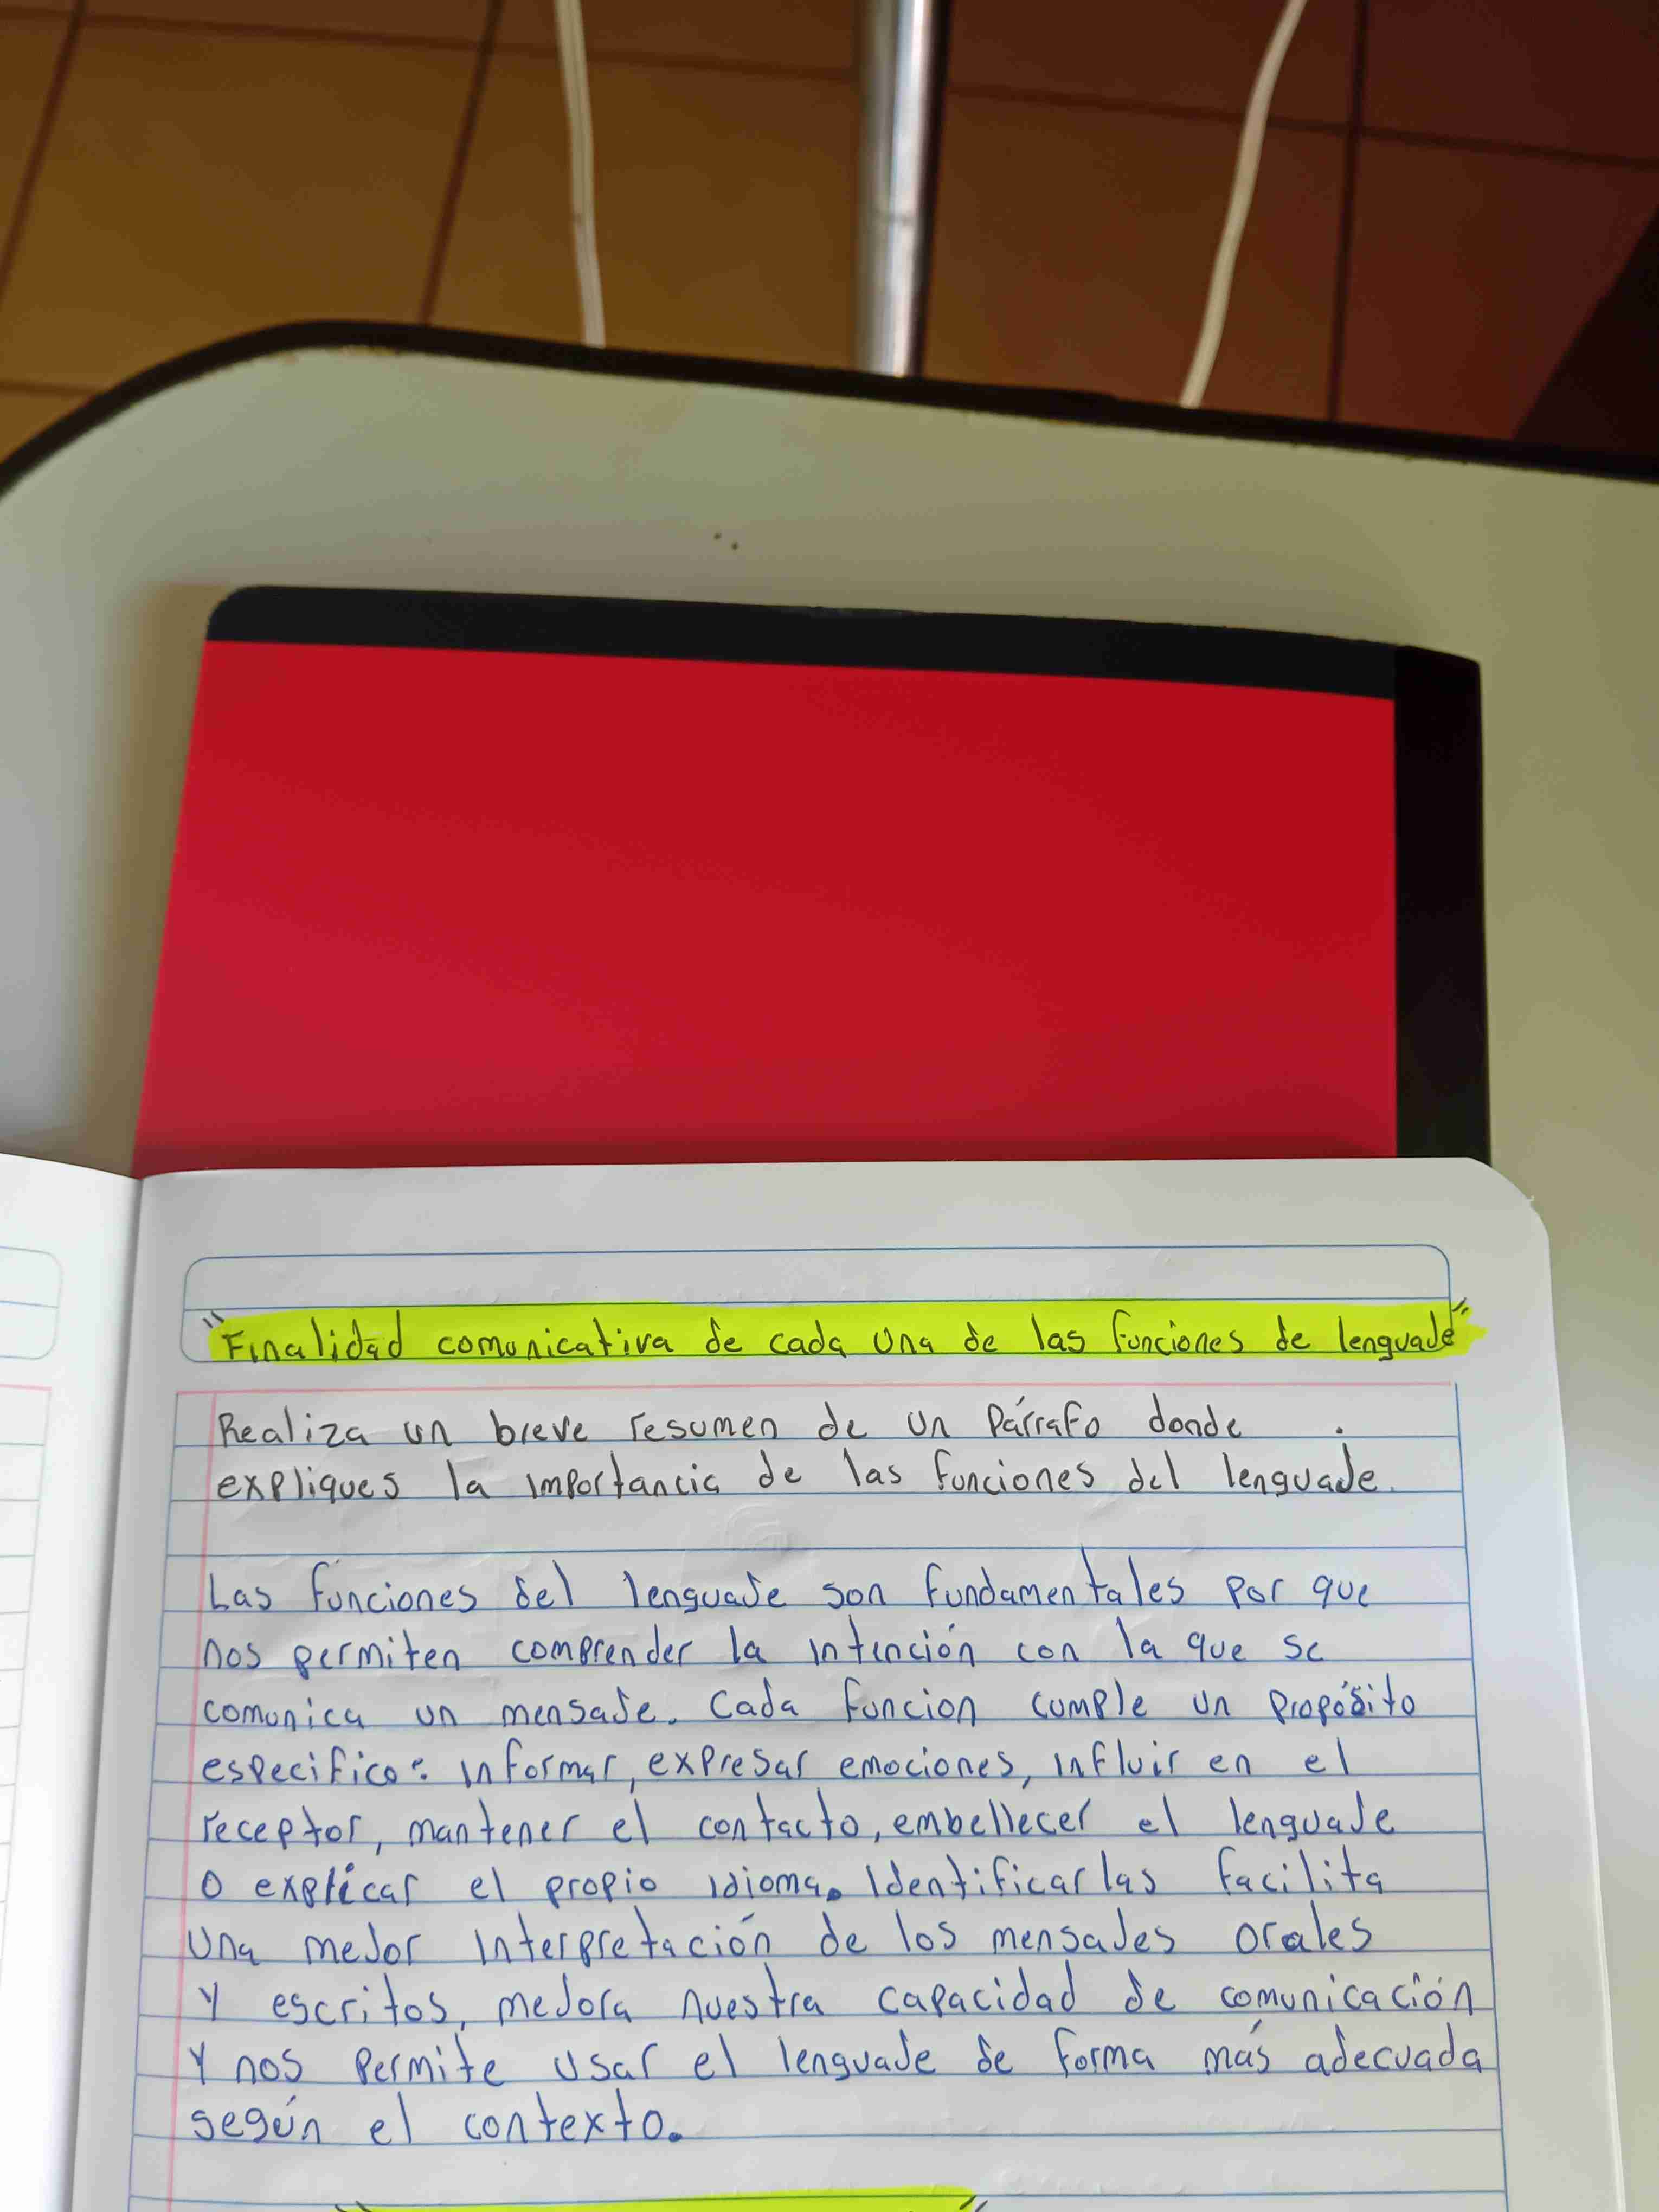 "Finalidad comunicativa de cada una de las funciones de lenguaje"
Realiza un breve resumen de un Párrafo donde
expliques la importancia de las funciones del lenguaje.
Las funciones del lenguaje son fundamentales por que
nos permiten comprender la intención con la que se
comunica un mensaje. Cada funcion cumple un propósito
especifico: informar, expresar emociones, influir en el
receptor, mantener el contacto, embellecer el lenguaje
o explicar el propio idioma. Identificarlas facilita
una mejor interpretación de los mensajes orales
y escritos, mejora nuestra capacidad de comunicación
y nos permite usar el lenguaje de forma más adecuada
según el contexto.